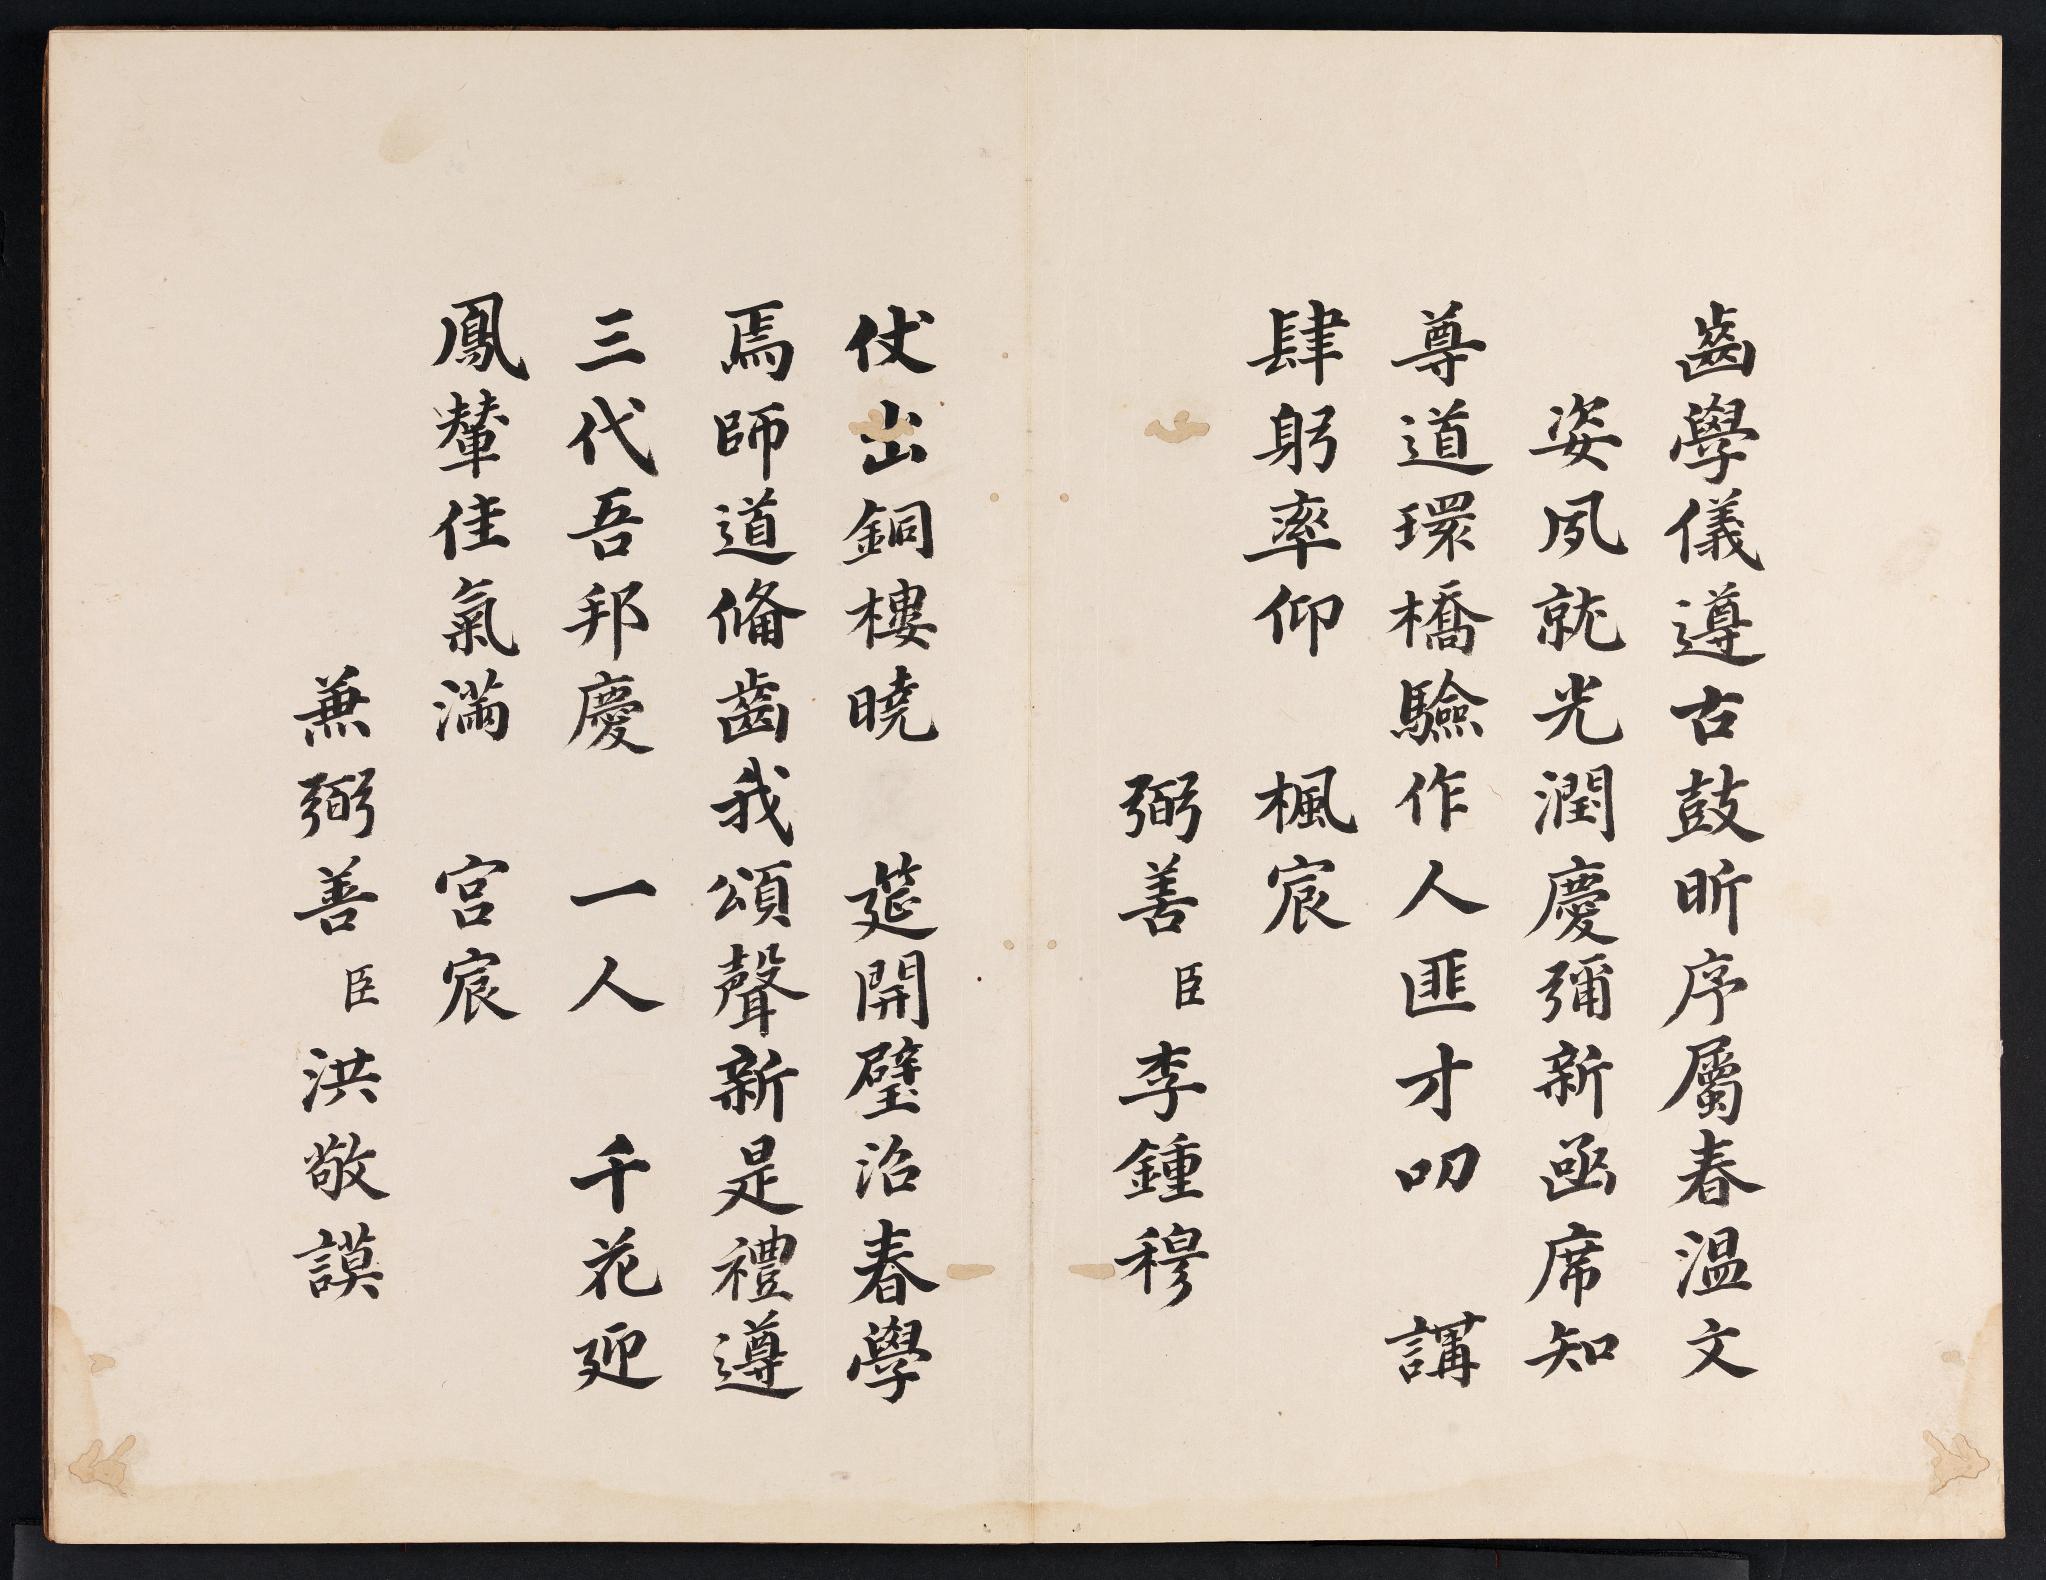 齒學儀遵古鼓昕序屬春溫文
姿夙就光潤慶彌新函席知
尊道環橋驗作人匪才叨 講
肆躬率仰 楓宸
弼善臣李鍾穆
仗出銅樓曉 筵開璧沼春學
焉師道脩齒我頌聲新是禮遵
三代吾邦慶 一人 千花迎
鳳輦佳氣滿 宮宸
兼弼善臣洪敬謨